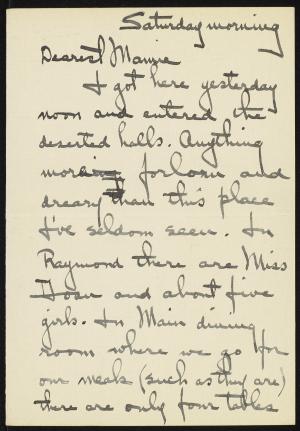 Saturday morning
Dearest Mamie
I got here yesterday
noon and entered the
deserted halls. Anything
more forlorn and
dreary than this place
I've seldom seen. In
Raymond there are Miss
and about five
girls. In Main dining
room where we go for
our meals (such as they are)
there are only four tables